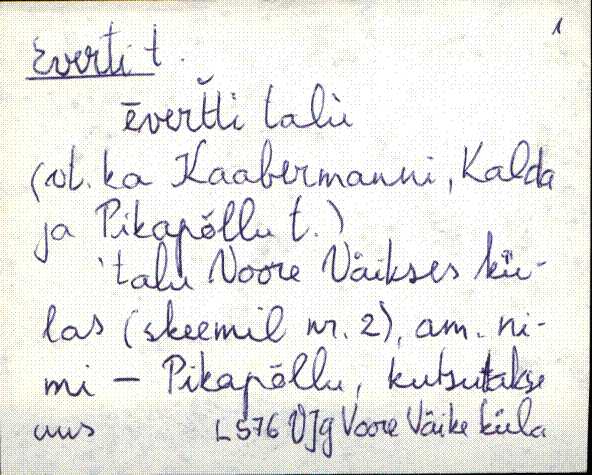 1
Everti t.
ēver̆tti talu
(vt. ka Kaabermanni, Kalda
ja Pikapõllu t.)
'talu Voore Väikses kü-
las (skeemil nr. 2), am. ni-
mi – Pikapõllu, kutsutakse
uus L576 VJg Voore Väike küla